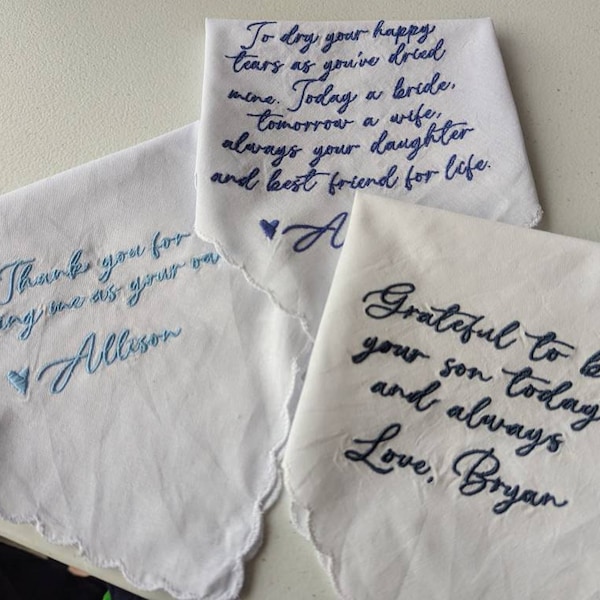 To dry your happy
tears as you've dried
mine. Today a bride,
tomorrow a wife,
always your daughter
and best friend for life.
A
Thank you for
ing me as your ow
Allison
Grateful to b
your son today
and always
Love, Bryan